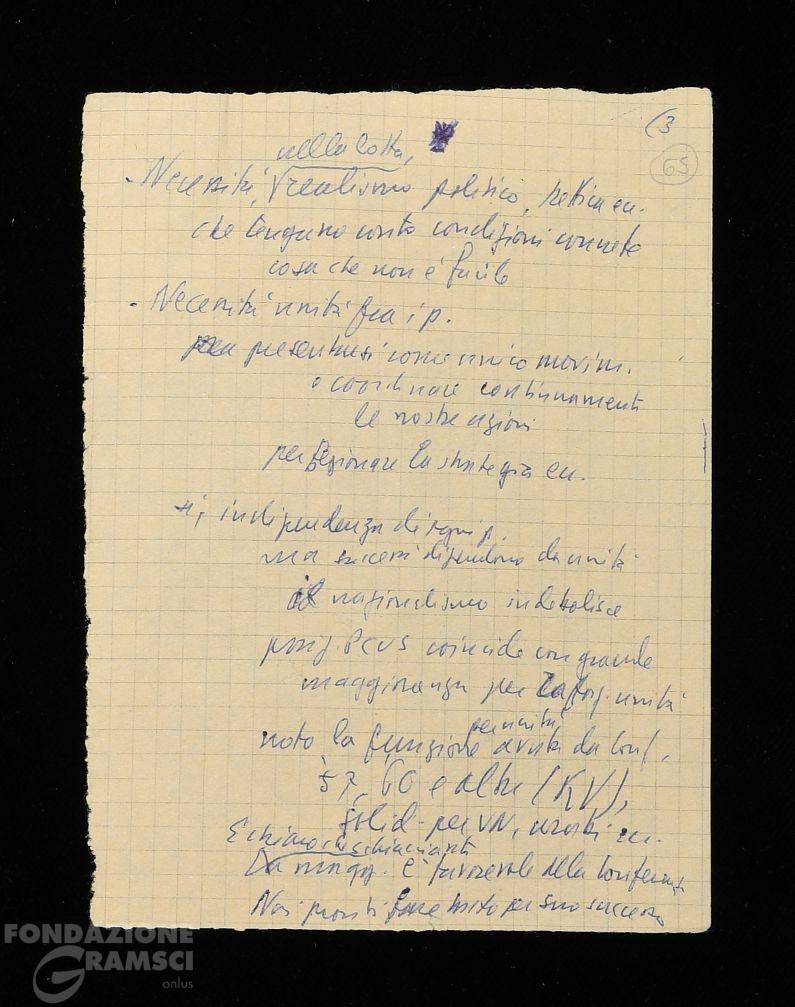 (3
65
nella lotta,
- Necessità, realismo politico, tattica ecc.
che tengano conto condizioni concrete
cosa che non è facile
- Necessità unità fra i p.
per presentarsi come unico movim.
e coordinare continuamente
le nostre azioni
perfezionare la strategia ecc.
sì, indipendenza di ogni p.
ma successi dipendono da unità
il nazionalismo indebolisce
posiz. PCUS coincide con grande
maggioranza per unità
per unità
noto la funzione avuta da conf.
57, 60 e altre (KV),
solid. per VN,
E chiaro che schiacciante
La magg. è favorevole alla Conferenza
Noi pronti fare tutto per suo successo
FONDAZIONE
GRAMSCI
onlus